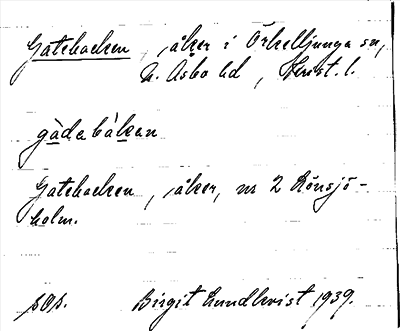 Gatebacken, åker i Örkelljunga sn,
N. Åsbo hd, Krist. l.
gàdabàkan
Gatebacken, åker, nr 2 Rönsjö-
holm.
Birgit Lundkvist 1939.